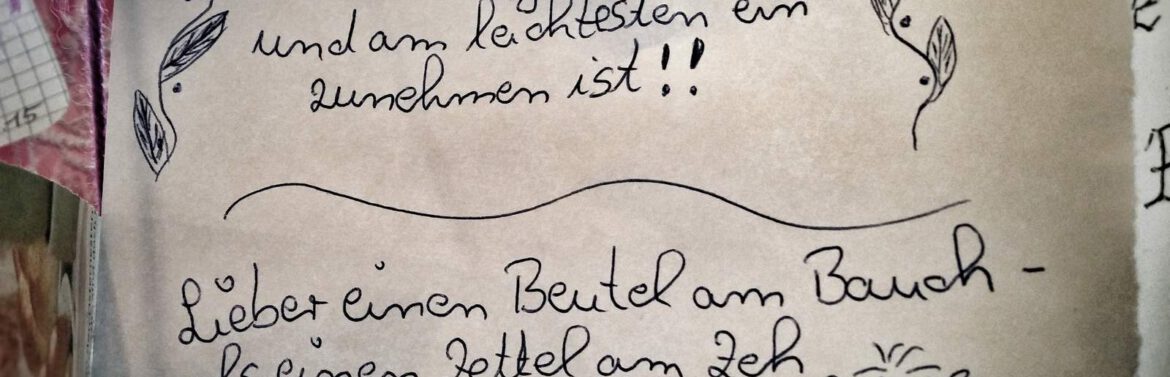 und am leichtesten ein
zunehmen ist!!
15
Lieber einen Beutel am Bauch -
einen Zettel am Zeh